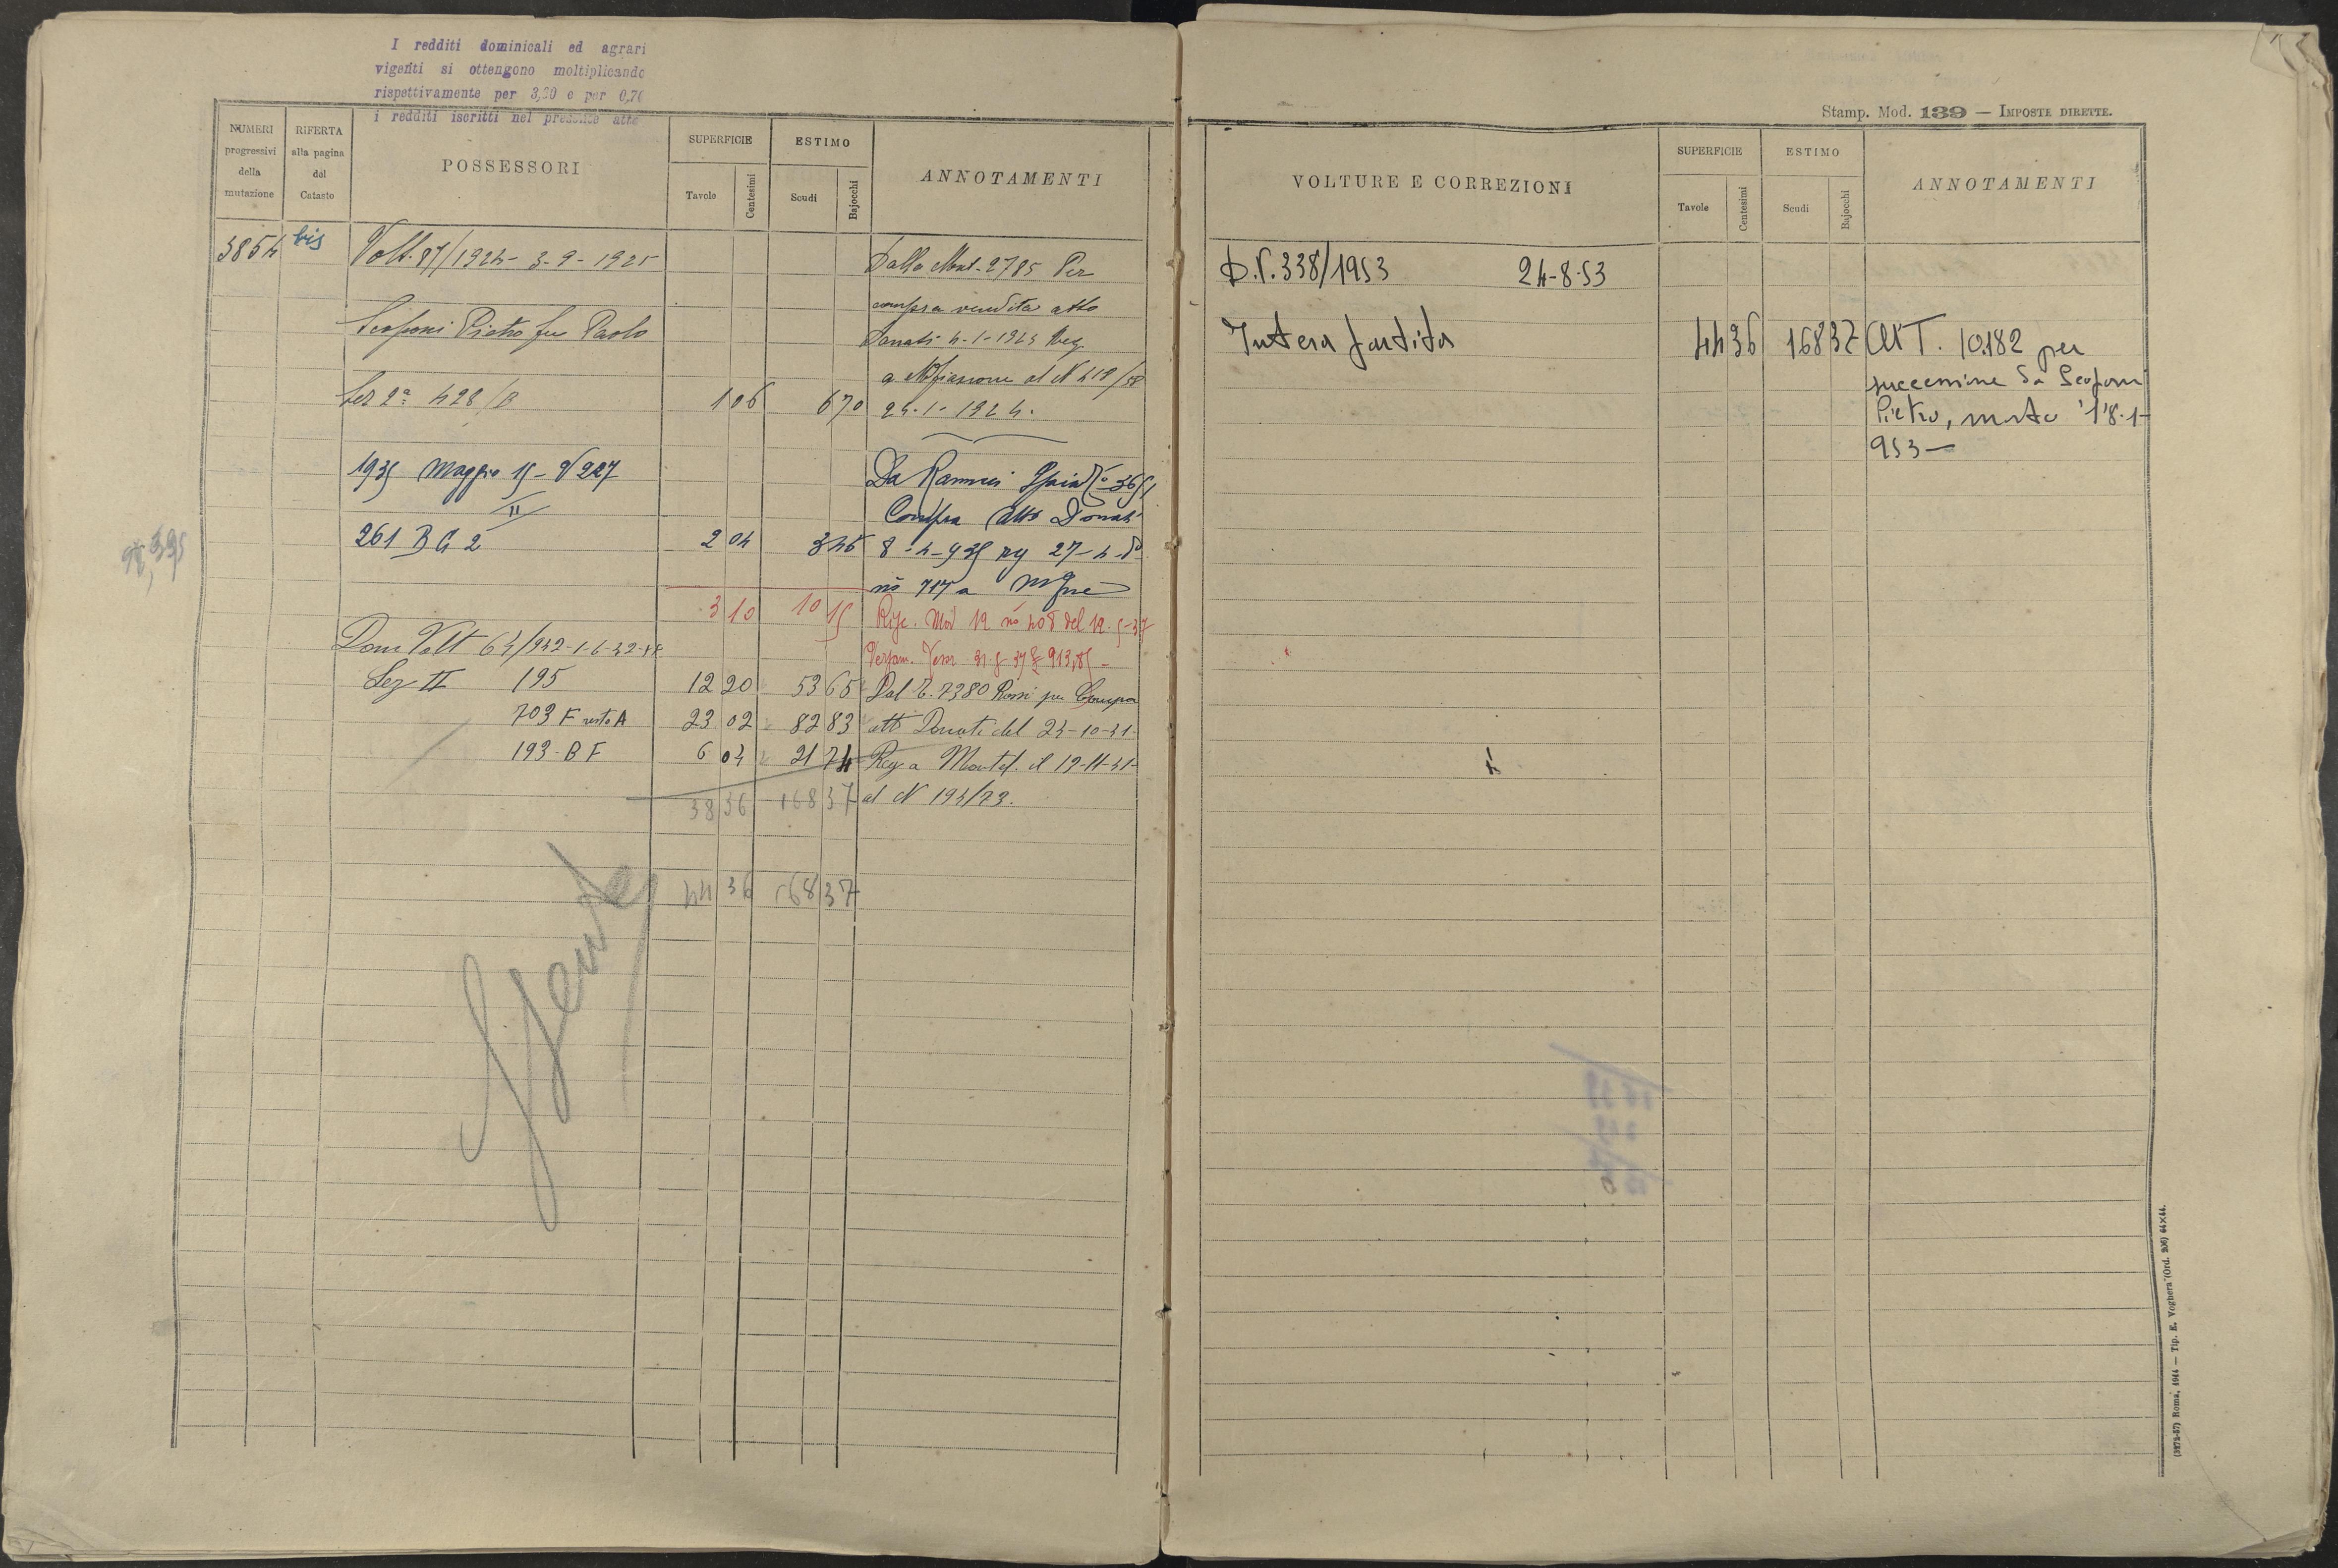 I redditi dominicali ed agrari
vigenti si ottengono moltiplicando
rispettivamente per 3,20 e per 0,70
i redditi iscritti nel presente atto
NUMERI progressivi della mutazione
RIFERTA alla pagina del Catasto
POSSESSORI
SUPERFICIE
Tavole
Centesimi
ESTIMO
Scudi
Bajocchi
ANNOTAMENTI
3854 bis
Volt. 87/1924 - 3-9-1925
Dalla Mut. 2785 Per
compra vendita atto
Scoponi Pietro fu Paolo
Donati 4-1-1924 Reg.
a al N 418/
Sez 2ª 428/B 1 06 6 70
24-1-1924.
1935 Maggio 15 - N 227
Da No 3651
II
Compra atto Donati
261 B G 2 2 04 3 45
8-4-935 reg 27-4-do
no 717 a
3 10 10 15
Rife. Mod 12 no 408 del 12-5-37
Dom Volt 64/942-1-6-42
Versam. Tesor 31-5-37 £ 913,85 -
Sez II 195 12 20 53 65
Dal T. 7380 Rossi per Compra
703 F resto A 23 02 82 83
atto Donati del 24-10-41-
193-B F 6 04 21 74
Reg a Montef. il 12-11-41-
38 36 168 37
al N 194/73.
44 36 168 37
Stamp. Mod. 139 — IMPOSTE DIRETTE.
VOLTURE E CORREZIONI
SUPERFICIE
Tavole
Centesimi
ESTIMO
Scudi
Bajocchi
ANNOTAMENTI
D.V. 338/1953 24-8-53
Intera partita 44 36 168 37
All T. 10.182 per
successione da Scoponi
Pietro, morto l'8-1-
953 —
(3272-57) Roma, 1944 — Tip. E. Voghera (Ord. 206) 64×44.